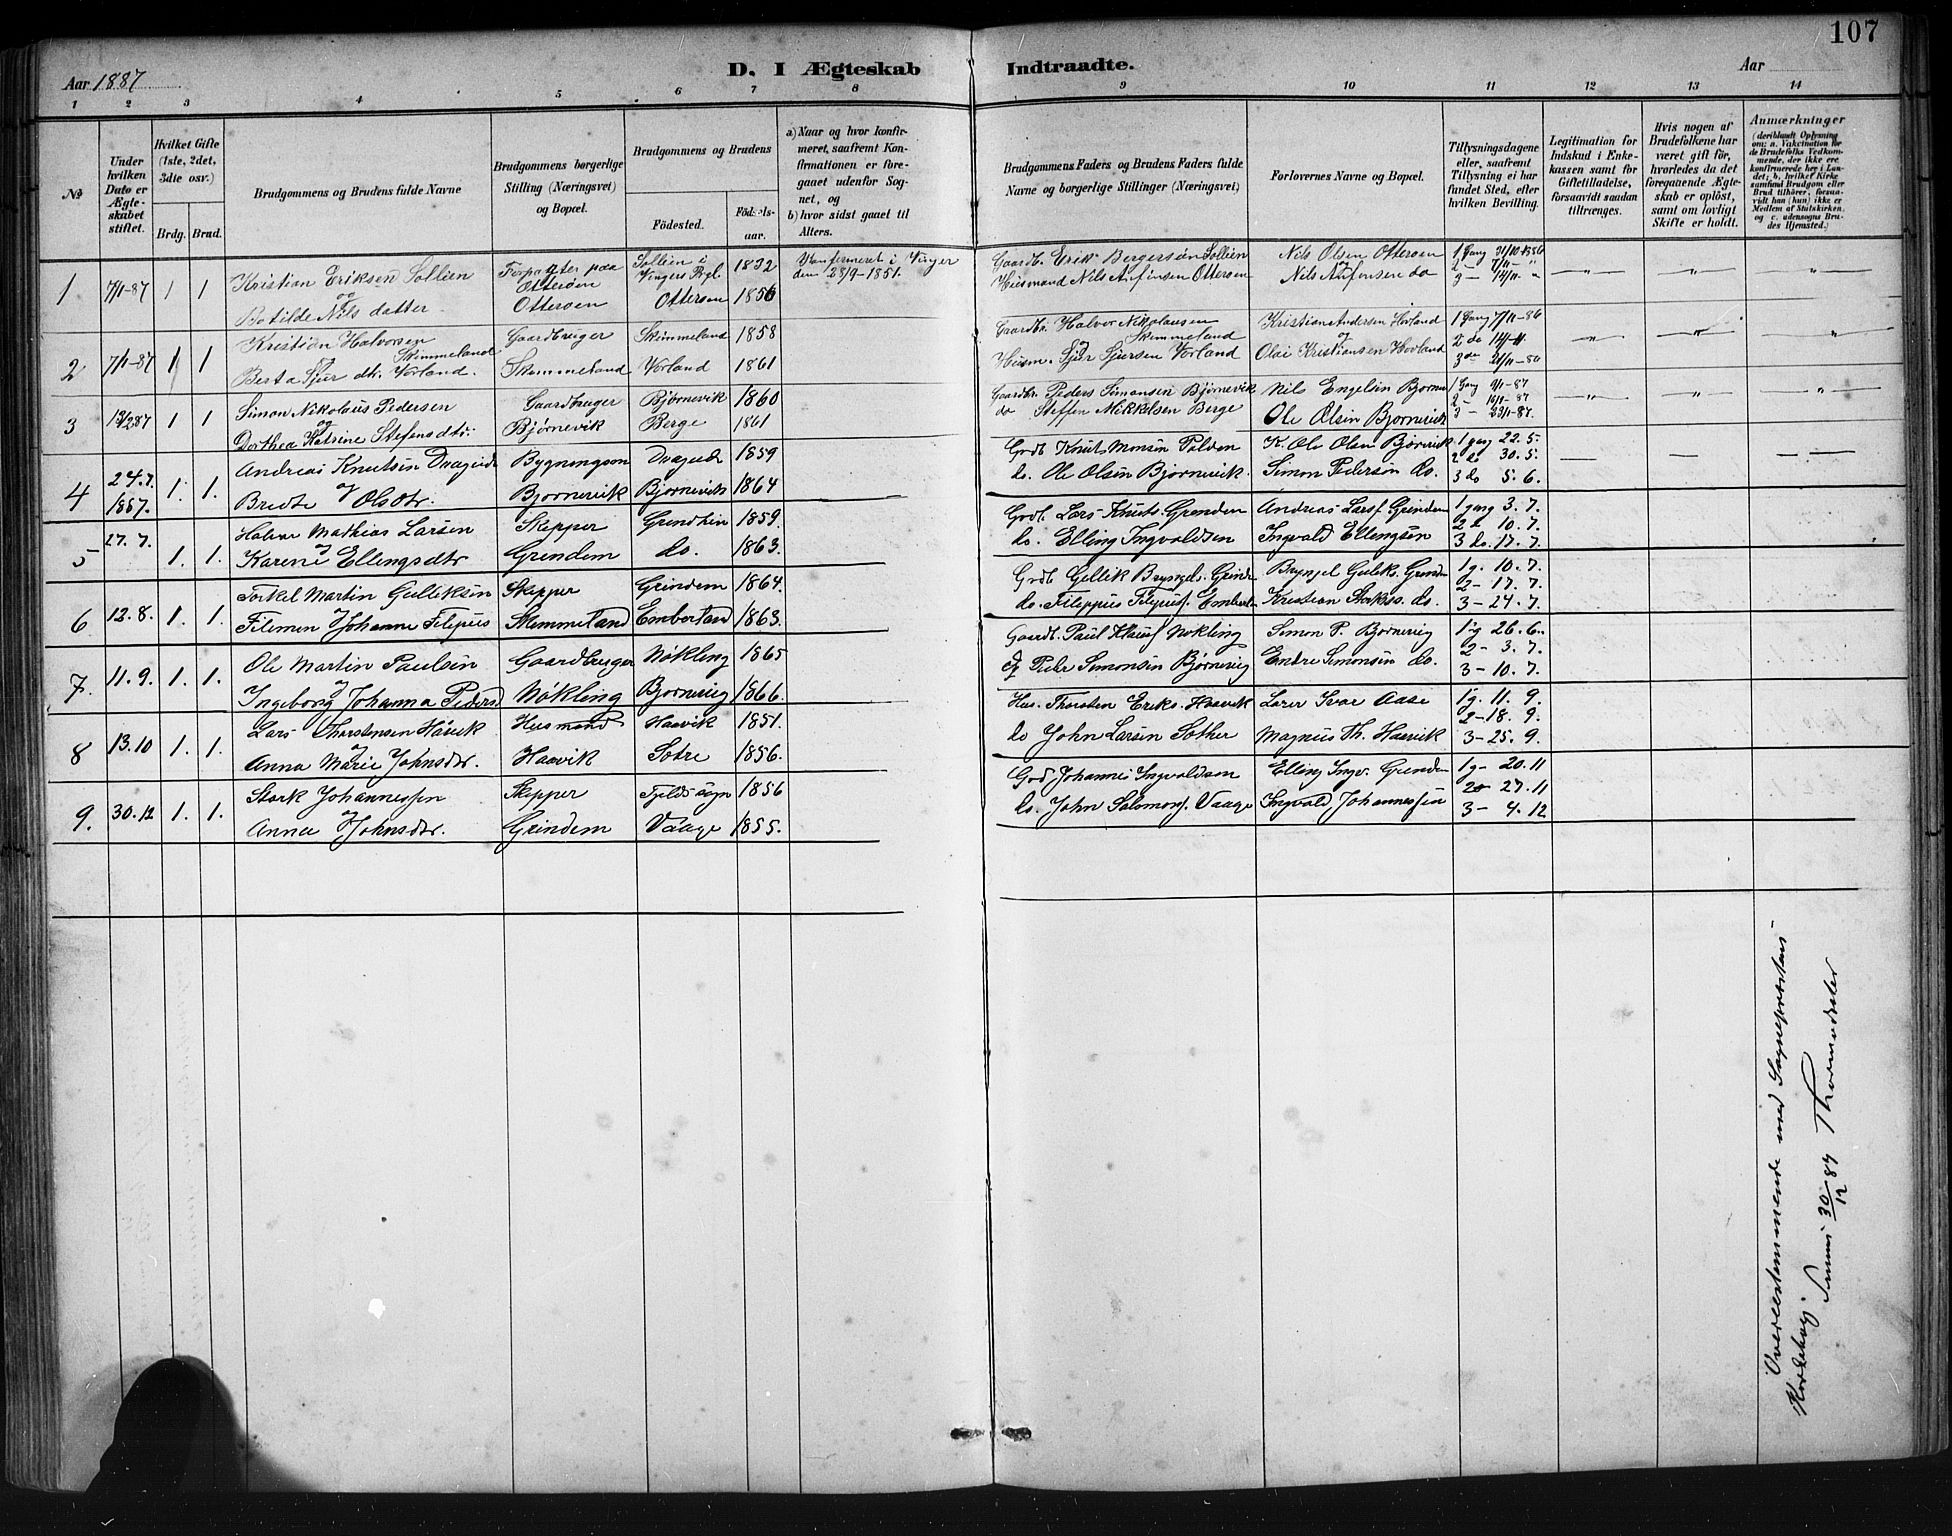 107
Aar 1887
D. I Ægteskab Indtraadte.
Aar
1 2 3 4 5 6 7 8 9 10 11 12 13 14
No
Under hvilken Dato er Ægteskabet stiftet.
Hvilket Gifte (1ste, 2det, 3die osv.)
Brdg. Brud.
Brudgommens og Brudens fulde Navne
Brudgommens borgerlige Stilling (Næringsvei) og Bopæl.
Brudgommens og Brudens
Fødested.
Fødselsaar.
a) Naar og hvor konfirmeret, saafremt Konfirmationen er foregaaet udenfor Sognet, og
b) hvor sidst gaaet til Alters.
Brudgommens Faders og Brudens Faders fulde Navne og borgerlige Stillinger (Næringsvei)
Forlovernes Navne og Bopæl.
Tillysningsdagene eller, saafremt Tillysning ei har fundet Sted, efter hvilken Bevilling.
Legitimation for Indskud i Enkekassen samt for Giftetilladelse, forsaavidt saadan tiltrænges.
Hvis nogen af Brudefolkene har været gift før, hvorledes da det foregaaende Ægteskab er opløst, samt om lovligt Skifte er holdt.
Anmærkninger (deriblandt Oplysning om: a. Vakcination for de Brudefolks Vedkommende, der ikke ere konfirmerede her i Landet; b, hvilket Kirkesamfund Brudgom eller Brud tilhører, forsaavidt han (hun) ikke er Medlem af Statskirken, og c. udensogns Brudes Hjemsted.)
1 7/1-87 1 1 Kristian Eriksen Sollien Forpagter paa Otterøen Sollien i Vingers Pgl. 1832 Konfirmeret i Vinger den 28/9-1851. Gaardbr. Erik Bergersøn Sollien Nils Olsen Otterøen 1 Gang 31/10-1886
og
Botilde Nils datter Otterøen Otterøen 1856 Huusmand Nils Anfinsen Otterøen Nils Anfinsen do 2 - 7/11- " 3 - 14/11- "
2 7/1-87 1 1 Kristian Halvorsen Skimmeland Gaardbruger Skimmeland 1858 Gaardbr. Halvor Nikolausen Skimmeland Kristian Andersen Hovland 1 Gang 7/11-86
og
Berta Sjur dtr. Vorland. Skimmeland Vorland 1861 Huusm. Sjur Sjursen Vorland Olai Kristiansen Hovland 2 do 14/11 3de 21/11-86
3 13/2 87 1 1 Simon Nikolaus Pedersen Gaardbruger Bjørnevik 1860 Gaardbr. Peder Simonsen Bjørnevik Nils Engelsen 1 Gang 9/1-87
og
Dorthea Katrine Stefensdtr: Bjørnevik Berge 1861 do Steffen Mikkelsen Berge Ole Olsen Bjørnevik 2 - 16/1-87 3 - 23/1-87.
4 24.7. 1887. 1. 1. Andreas Knutsen Drageide Bygningsm Drageide 1859 Grdb. Knut Monsen K. Ole Olsen Bjørnevik 1 gang 22.5.
og
Olsdtr. Bjornevik Bjornevik 1864 do. Ole Olsen Bjornevik. Simon Pedersen do. 2 do 30.5. 3 do 5.6.
5 27.7. 1. 1. Mathias Larsen Skepper 1859. Grdb. Lars Knuts. Grenden Andreas Lars. Grindem 1 gang 3.7.
Karene Ellingsdtr Grendem do. 1863. do. Elling Ingvaldsen Ingvald Ellingsen 2 d 10.7. 3 do. 17.7.
6 12.8. 1. 1. Torkel Martin Gulliksen Skepper Grindem 1864. Grdb Gullik Bryngel. Bryngel Guliks. Grinde 1 g. 10.7.
Johanne Filipus Skimmeland 1863. do. Filippus Kristian do. 2 - 17.7. 3 - 24.7.
7. 11.9. 1. 1. Ole Martin Paulsen Gaardbruger Nøkling 1865 Gaardb. Paul Nøkling Simon P. Bjornevig 1 g 26.6.
Ingeborg Johanna Peders. Nøkling Bjornevig 1866. Peder Simonsen Bjørnevig Endre Simonsen do. 2 - 3.7. 3 - 10.7.
8 13.10 1. 1. Lars Thorstensen Haavik Husmand Haavik 1851. Hus. Thorsten Eriks. Haavik Lærer Ivar Aase 1 g. 11.9.
Anna Marie Johnsdtr. Haavik Sotre 1856. do John Larsen Sother Magnus Th. Haavik 2 - 18.9. 3 - 25.9.
9. 30.12 1. 1. Stork Johannessen Skepper Fjeldsogn 1856 Johannes Ingvaldsen Elling Ingv. Grendem 1 g - 20.11
Anna Johnsdtr. Grindem Vaage 1855. do. John Salomons. Vaage Ingvald Johannessen 2 - 27.11 3 - 4.12
Overensstemmende med Sognepræstens
Kirkebog.
30/12 87 Thormodsæter